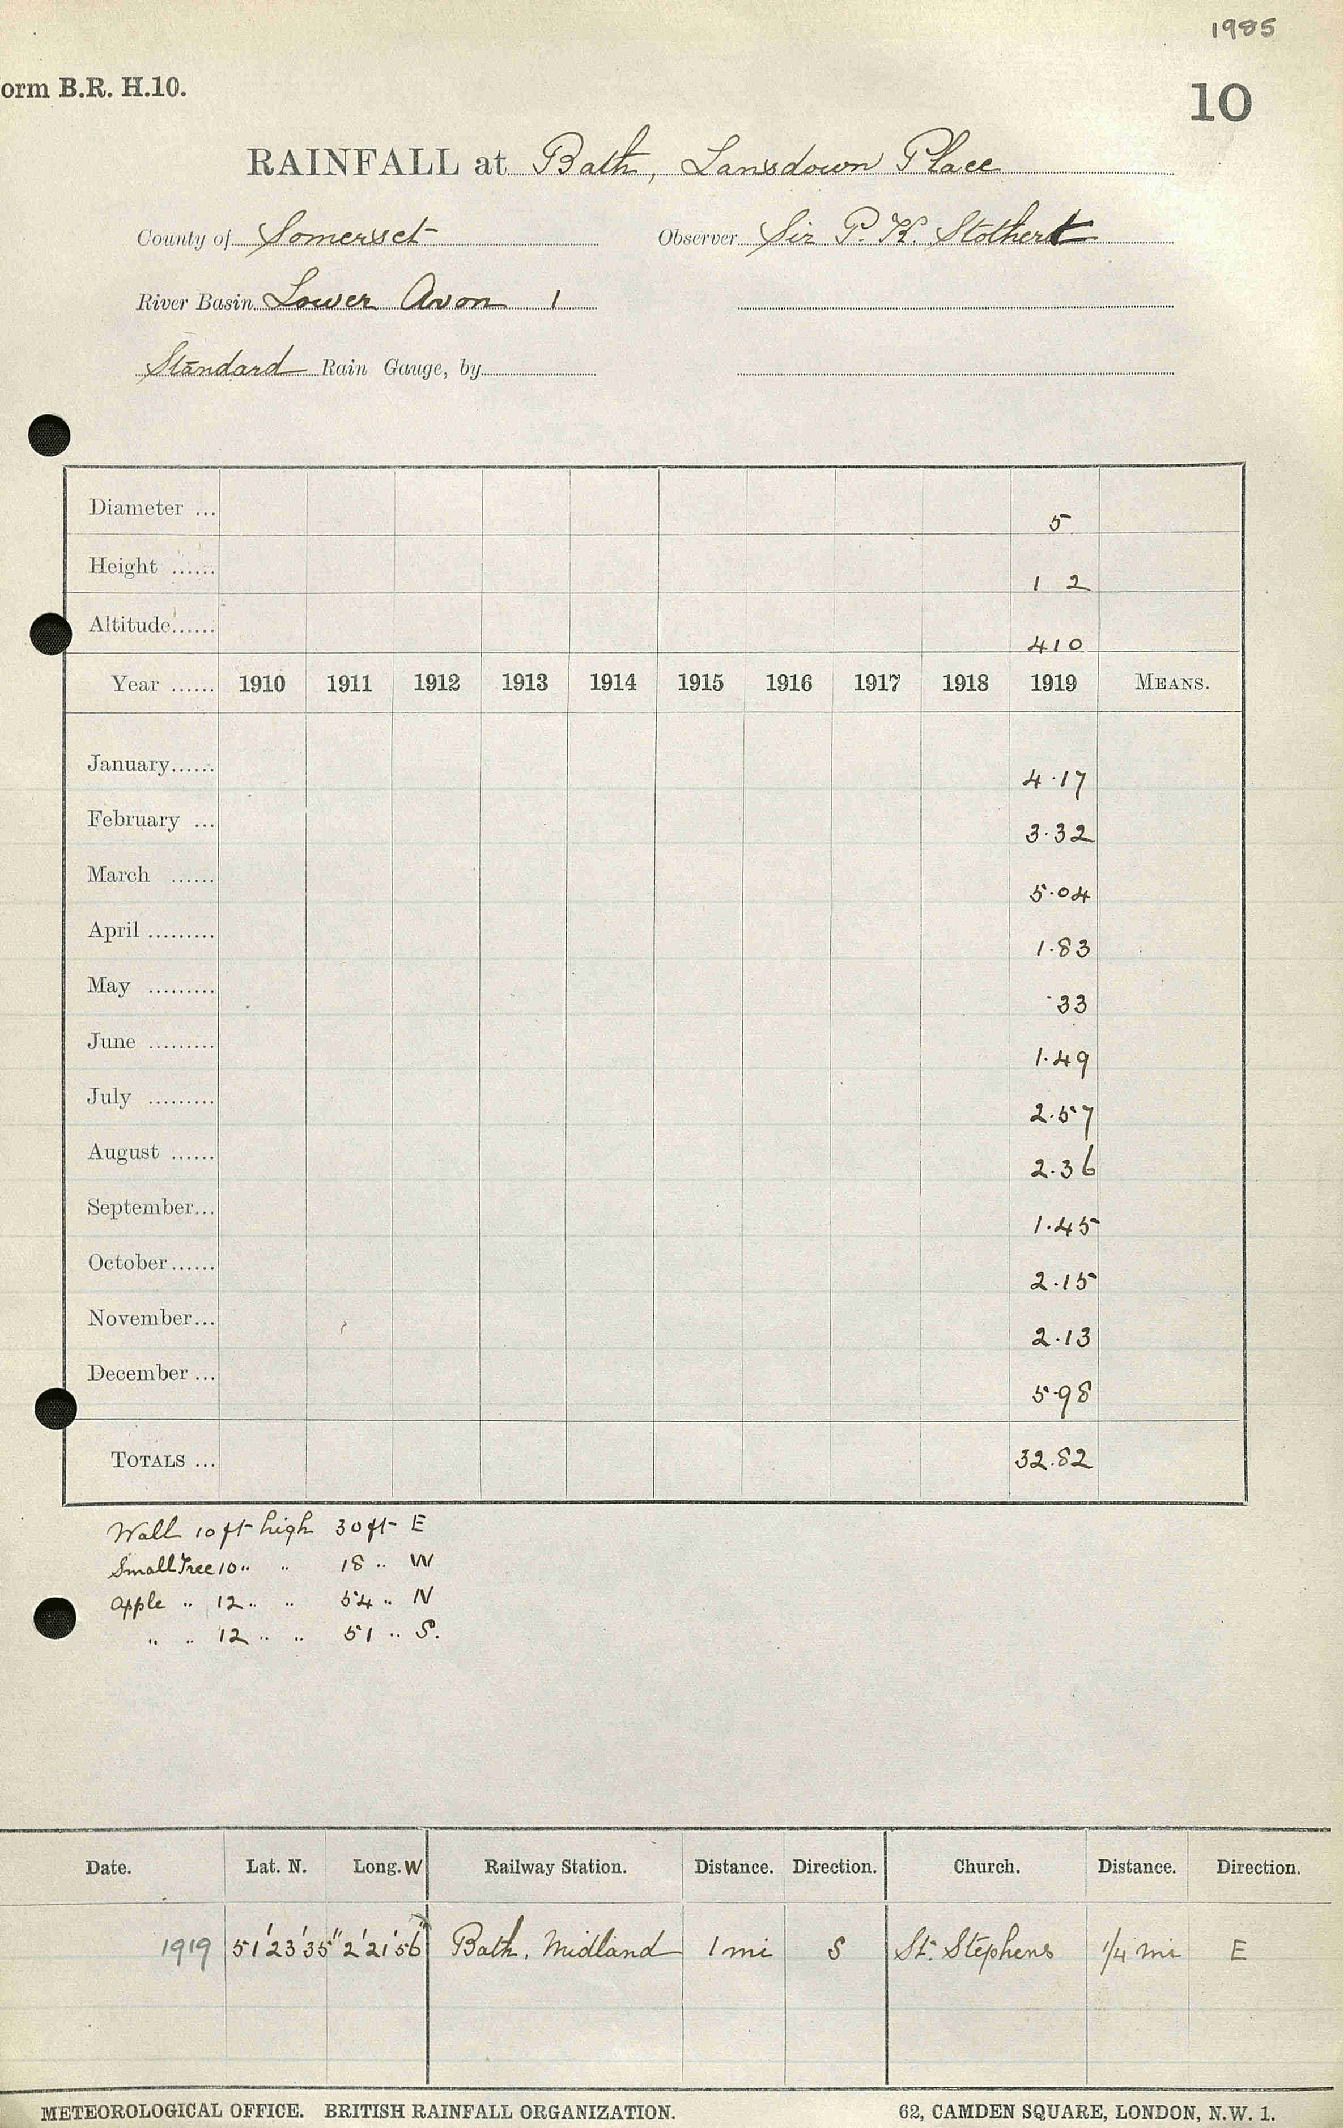 1985
orm B.R. H.10.
10
RAINFALL at Bath, Lansdown Place
County of Somerset Observer Sir P. K. Stothert
River Basin Lower Avon 1
Standard Rain Gauge, by
Diameter ... 5
Height ...... 1 2
Altitude...... 410
Year ...... 1910 1911 1912 1913 1914 1915 1916 1917 1918 1919 MEANS.
January...... 4.17
February ... 3.32
March ...... 5.04
April ......... 1.83
May ......... .33
June ......... 1.49
July ......... 2.57
August ...... 2.36
September... 1.45
October...... 2.15
November... 2.13
December ... 5.98
TOTALS ... 32.82
Wall 10 ft high 30 ft E
Small Tree 10 " " 18 " W
Apple " 12 " " 54 " N
" " 12 " " 51 " S.
Date. Lat. N. Long. W Railway Station. Distance. Direction. Church. Distance. Direction.
1919 51'23'35" 2'21'56" Bath, Midland 1 mi S St. Stephens 1/4 mi E
METEOROLOGICAL OFFICE. BRITISH RAINFALL ORGANIZATION. 62, CAMDEN SQUARE, LONDON, N.W. 1.